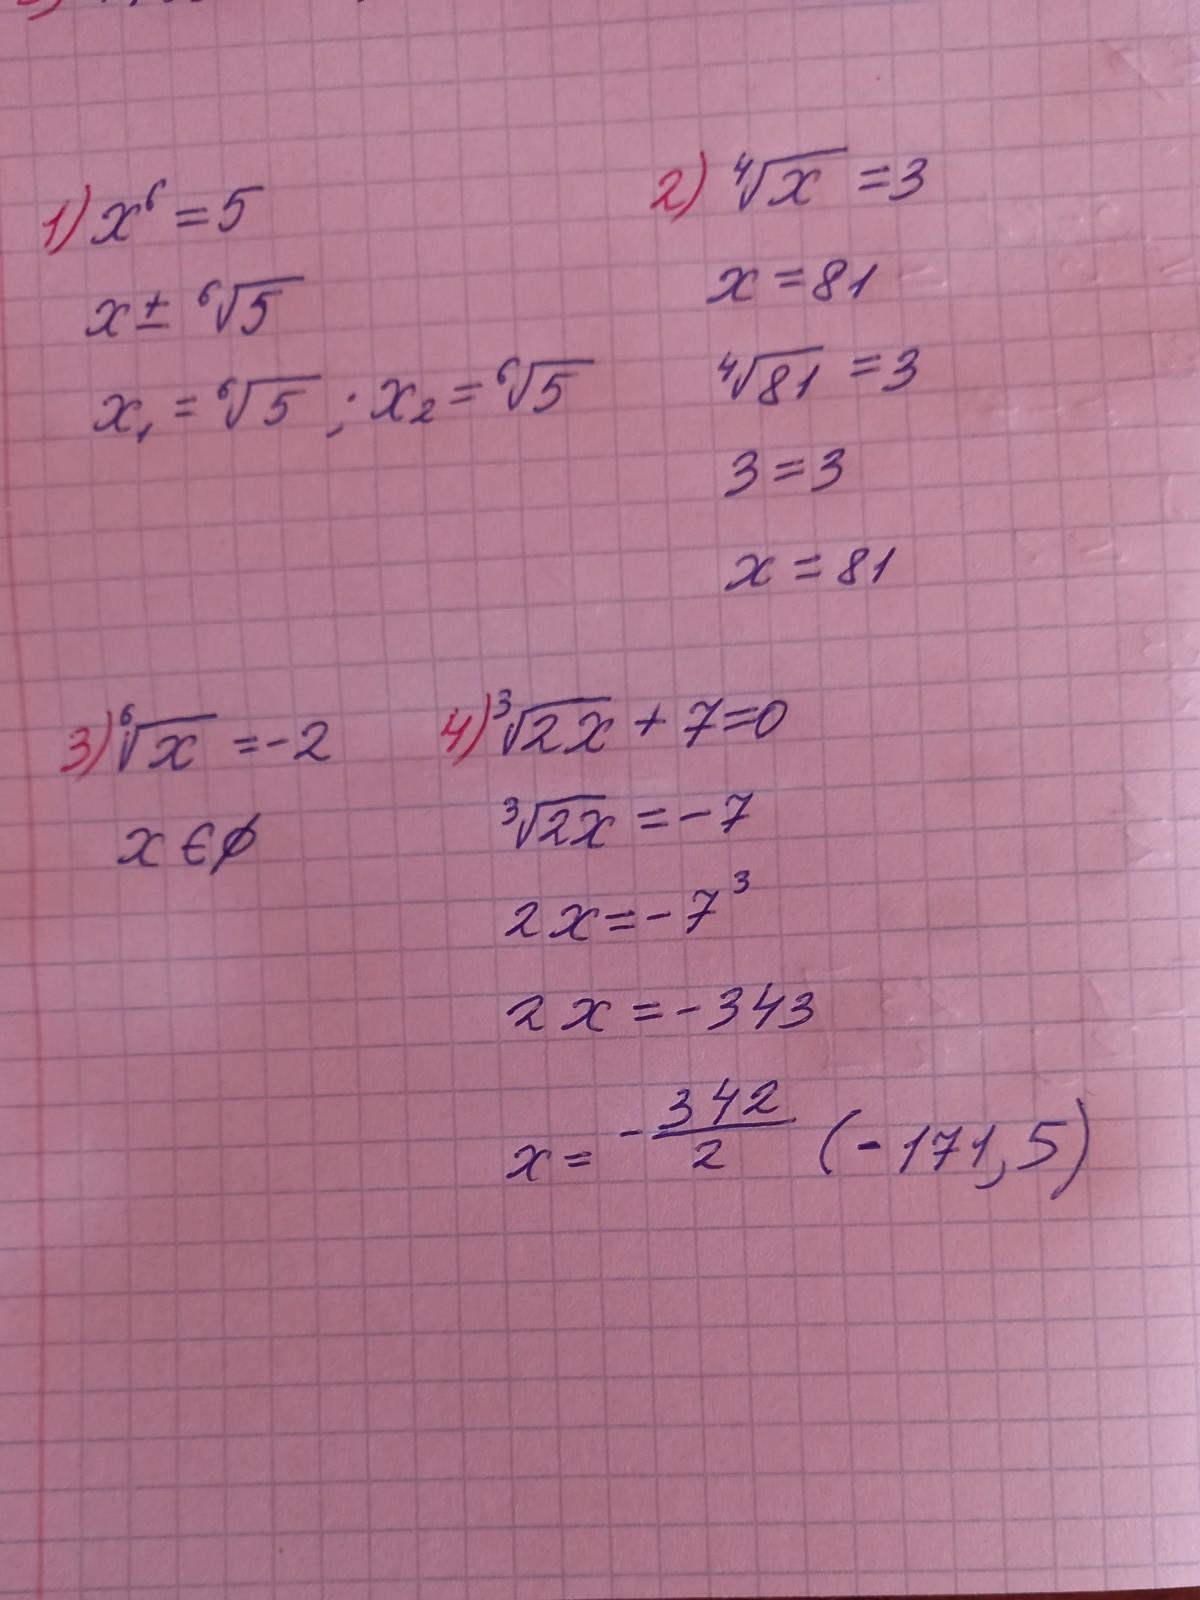 1) x⁶ = 5
x ± ⁶√5
x₁ = ⁶√5 ; x₂ = ⁶√5
2) ⁴√x = 3
x = 81
⁴√81 = 3
3 = 3
x = 81
3) ⁶√x = -2
x ∈ ∅
4) ³√2x + 7 = 0
³√2x = -7
2x = -7³
2x = -343
x = -342/2 (-171,5)